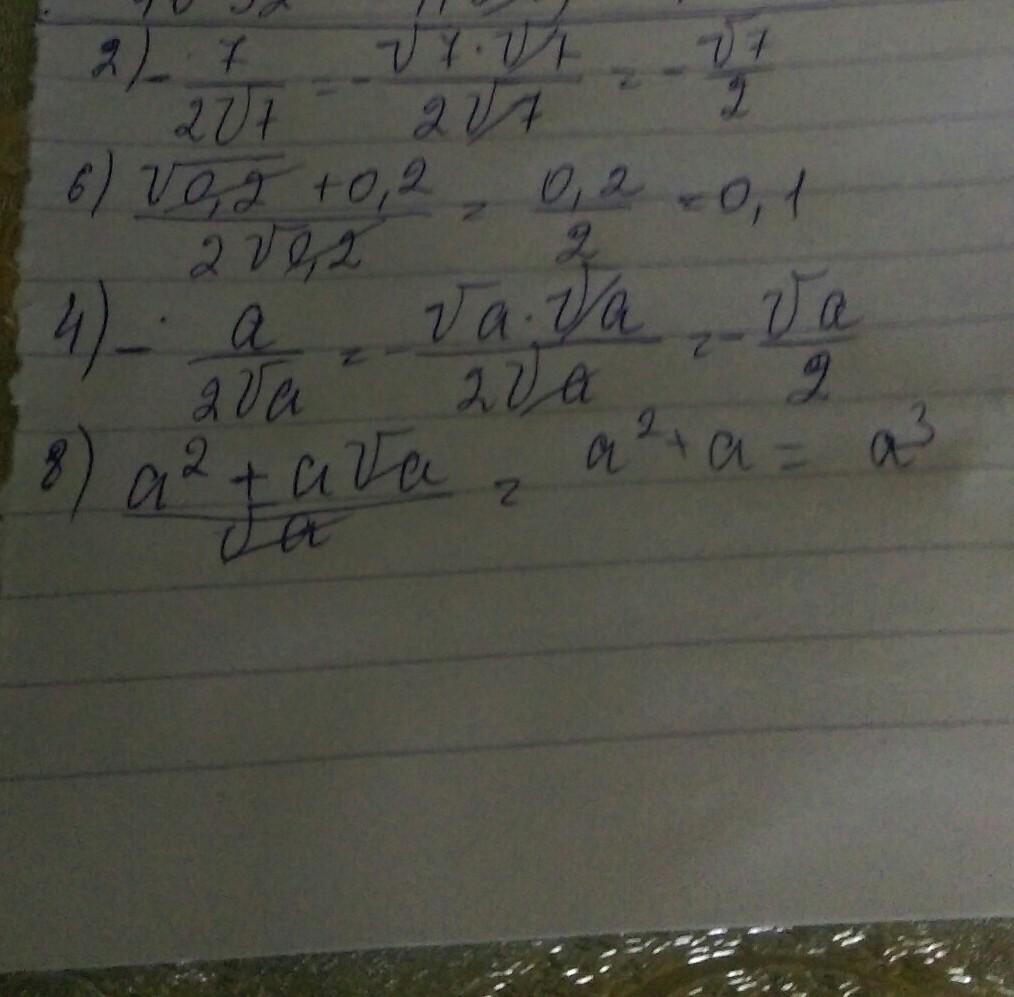 2) - 7/(2√7) = - (√7·√7)/(2√7) = - √7/2
6) (√0,2 + 0,2)/(2√0,2) = 0,2/2 = 0,1
4) - a/(2√a) = - (√a·√a)/(2√a) = - √a/2
8) (a² + a√a)/√a = a² + a = a³